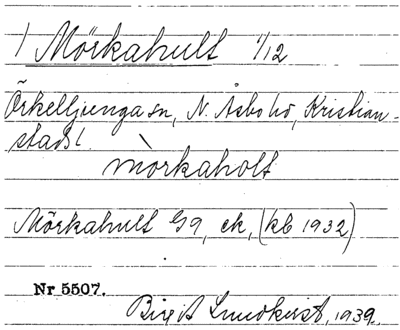 / Mörkahult 1/12
Örkelljunga sn, N. Åsbo hd, Kristian-
stads l.
mòrkaholt
Mörkahult G9, ek, (kb 1932)
Nr 5507.
Birgit Lundkvist, 1939.